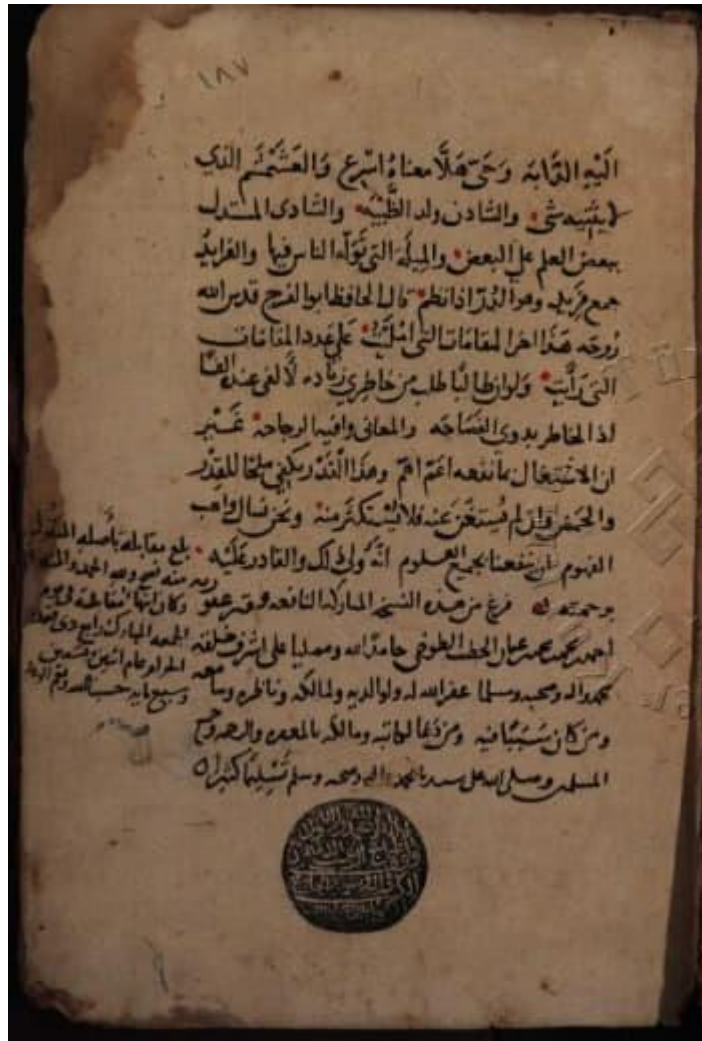 ١٨٧
اليه الدابه وحي هلا معناه اسرع والغشمشم الذي
لا يثنيه شي والشادن ولد الظبيه والشادى المستدل
ببعض العلم علي البعض والميله التي توله الناس فيها والفرايد
جمع فريد وهو الدر اذا نظم قال الحافظ ابو الفرج قدس الله
روحه هذا اخر المقامات التي امليت على عدد المقامات
التي رايت ولو ان طالبا طلب من خاطري زياده لالفى عنده الفا
اذ الخاطر يدوى الفصاحه والمعانى وافيه الرجاحه غير
ان الاشتغال بما نفعه اعم اهم وهذا القدر يكفي ملحا للقدر
والحمض وان لم يستغن عنه فلا يستكثر منه ونحن نسال واهب
الفهوم ان ينفعنا بجميع العلوم انه ولي ذلك والقادر عليه
برحمته فرغ من هذه النسخه المباركه النافعه فقير عفو
احمد بن محمد بن محمد بن عثمان الطوفى حامدا لله ومصليا على اشرف خلقه
محمد واله وصحبه ومسلما غفر الله له ولوالديه ولمالكه وناظره وسامعه
ومن كان سببا فيه ومن دعا لكاتبه ومالكه بالمغفره والرحمه وجميع
المسلمين وصلى الله على سيدنا محمد واله وصحبه وسلم تسليما كثيرا
بلغ مقابله باصله المنقول
منه فصح ولله الحمد والمنه
وكان انتها مقابلته فى يوم
الجمعه المبارك رابع
الحرام عام اثنين وتسعين
وسبع مايه حسبنا الله ونعم الوكيل